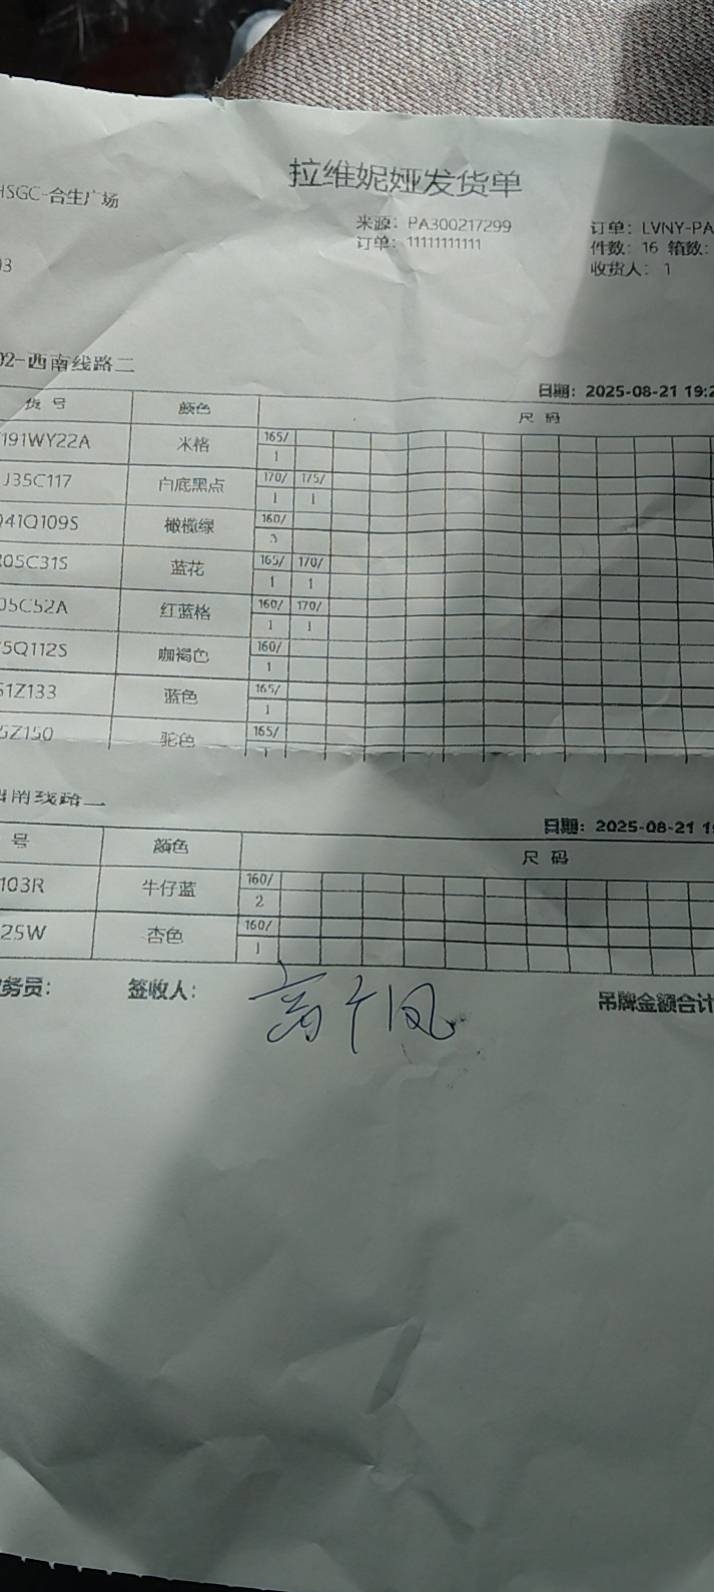 拉维妮娅发货单
HSGC-合生广场
来源: PA300217299
订单: 11111111111
订单: LVNY-PA
件数: 16 箱数:
收货人: 1
03
02-西南线路二
日期: 2025-08-21 19:2
货号 颜色 尺码
191WY22A 米格 165/
1
J35C117 白底黑点 170/ 175/
1 1
41Q109S 橄榄绿 160/
3
05C31S 蓝花 165/ 170/
1 1
05C52A 红蓝格 160/ 170/
1 1
5Q112S 咖褐色 160/
1
51Z133 蓝色 165/
1
5Z150 驼色 165/
1
西南线路二
日期: 2025-08-21 1
号 颜色 尺码
103R 牛仔蓝 160/
2
25W 杏色 160/
1
务员: 签收人: 吊牌金额合计